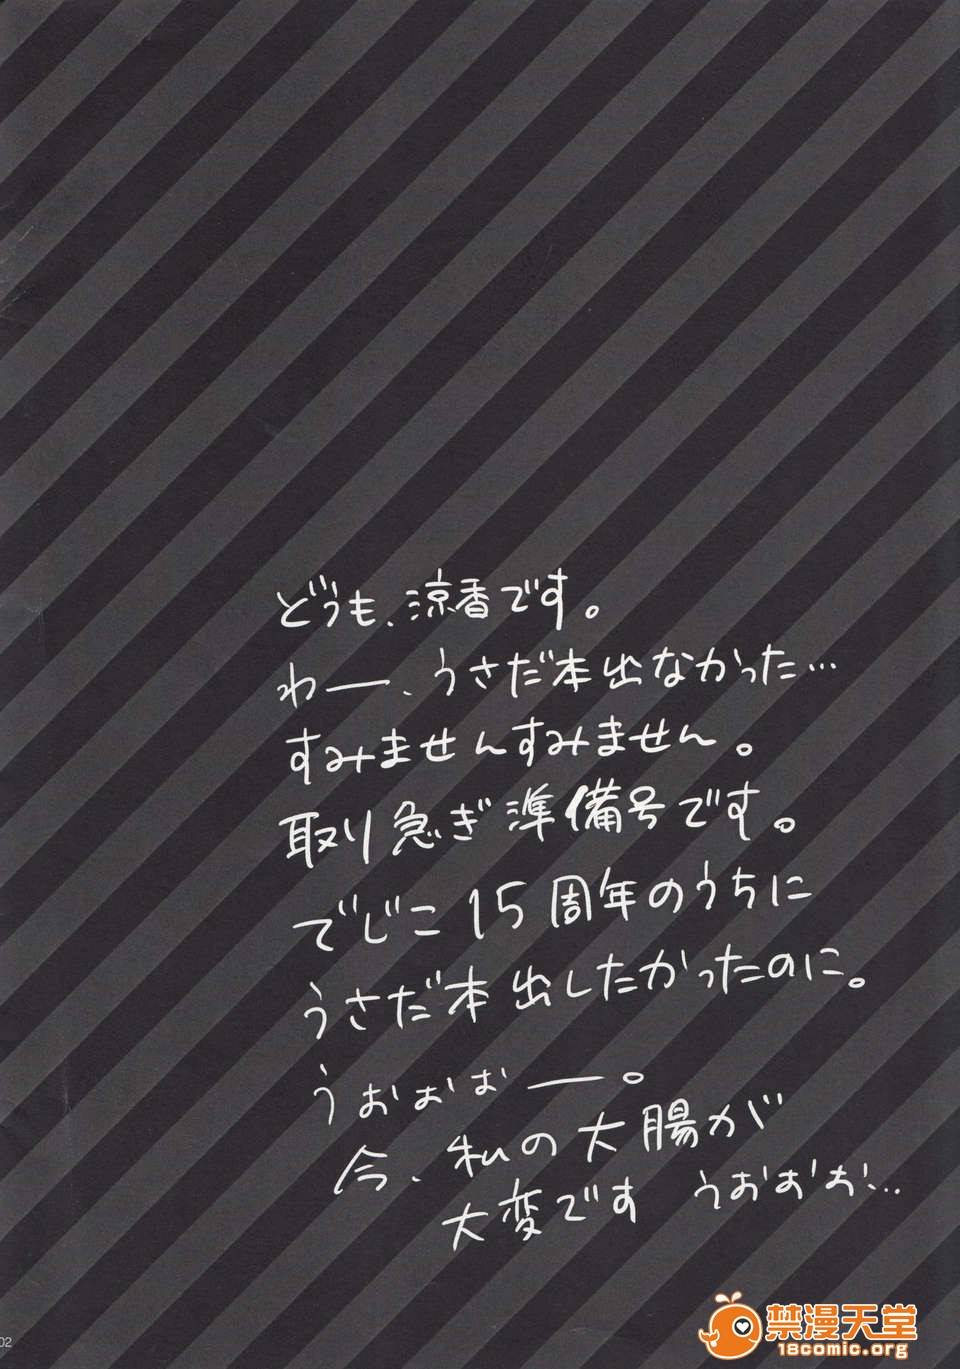 どうも、涼香です。
わー、うさだ本出なかった…
すみませんすみません。
取り急ぎ準備号です。
でじこ15周年のうちに
うさだ本出したかったのに。
うぉぉぉー。
今、私の大腸が
大変です うおおお…
02
禁漫天堂
18comic.org